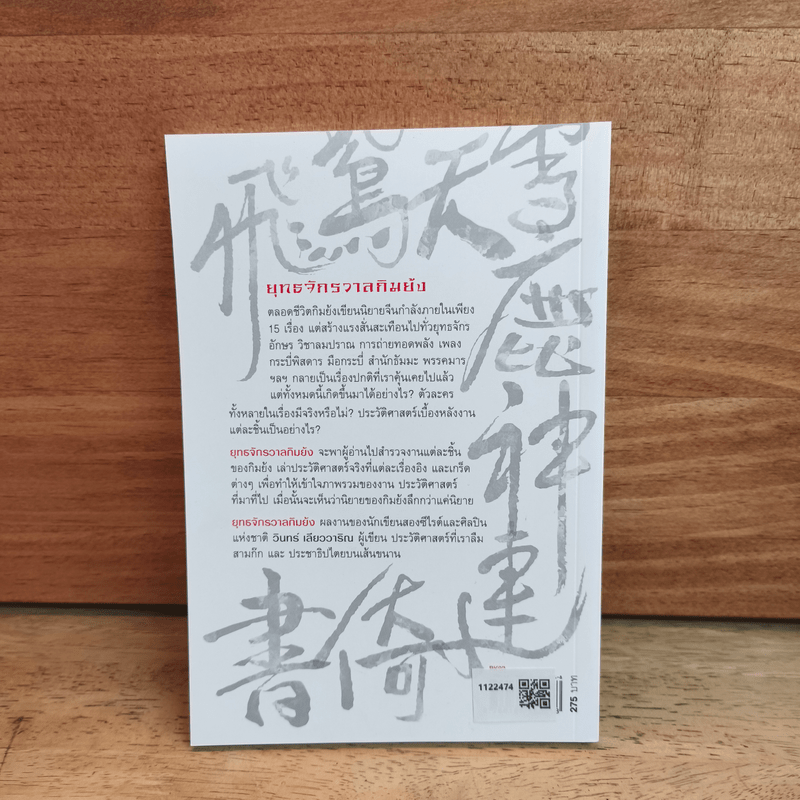 飛 鴛 天 雪
鹿
神
連
書 倚
ยุทธจักรวาลกิมย้ง
ตลอดชีวิตกิมย้งเขียนนิยายจีนกำลังภายในเพียง
15 เรื่อง แต่สร้างแรงสั่นสะเทือนไปทั่วยุทธจักร
อักษร วิชาลมปราณ การถ่ายทอดพลัง เพลง
กระบี่พิสดาร มือกระบี่ สำนักธัมมะ พรรคมาร
ฯลฯ กลายเป็นเรื่องปกติที่เราคุ้นเคยไปแล้ว
แต่ทั้งหมดนี้เกิดขึ้นมาได้อย่างไร? ตัวละคร
ทั้งหลายในเรื่องมีจริงหรือไม่? ประวัติศาสตร์เบื้องหลังงาน
แต่ละชิ้นเป็นอย่างไร?
ยุทธจักรวาลกิมย้ง จะพาผู้อ่านไปสำรวจงานแต่ละชิ้น
ของกิมย้ง เล่าประวัติศาสตร์จริงที่แต่ละเรื่องอิง และเกร็ด
ต่างๆ เพื่อทำให้เข้าใจภาพรวมของงาน ประวัติศาสตร์
ที่มาที่ไป เมื่อนั้นจะเห็นว่านิยายของกิมย้งลึกกว่าแค่นิยาย
ยุทธจักรวาลกิมย้ง ผลงานของนักเขียนสองซีไรต์และศิลปิน
แห่งชาติ วินทร์ เลียววาริณ ผู้เขียน ประวัติศาสตร์ที่เราลืม
สามก๊ก และ ประชาธิปไตยบนเส้นขนาน
1122474
275 บาท